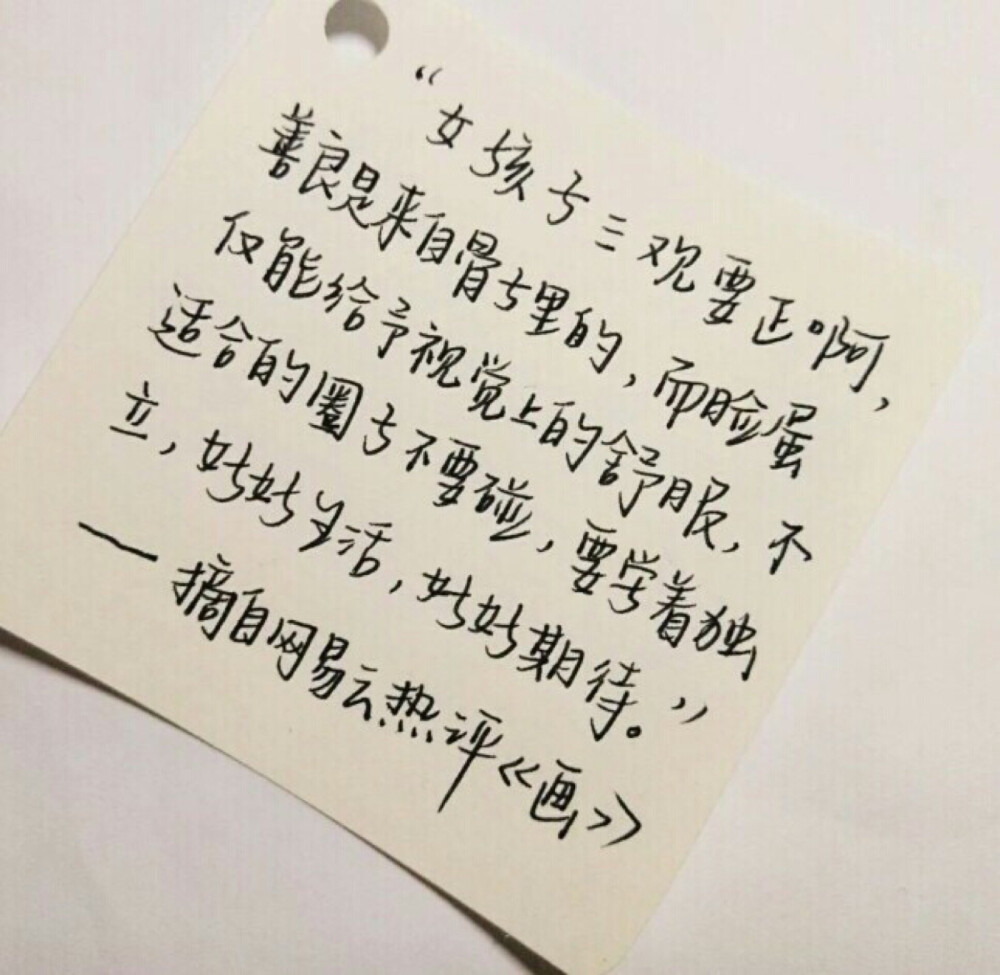 “女孩子三观要正啊，
善良是来自骨子里的，而脸蛋
仅能给予视觉上的舒服，不
适合的圈子不要碰，要学着独
立，好好生活，好好期待。”
—摘自网易云热评《画》